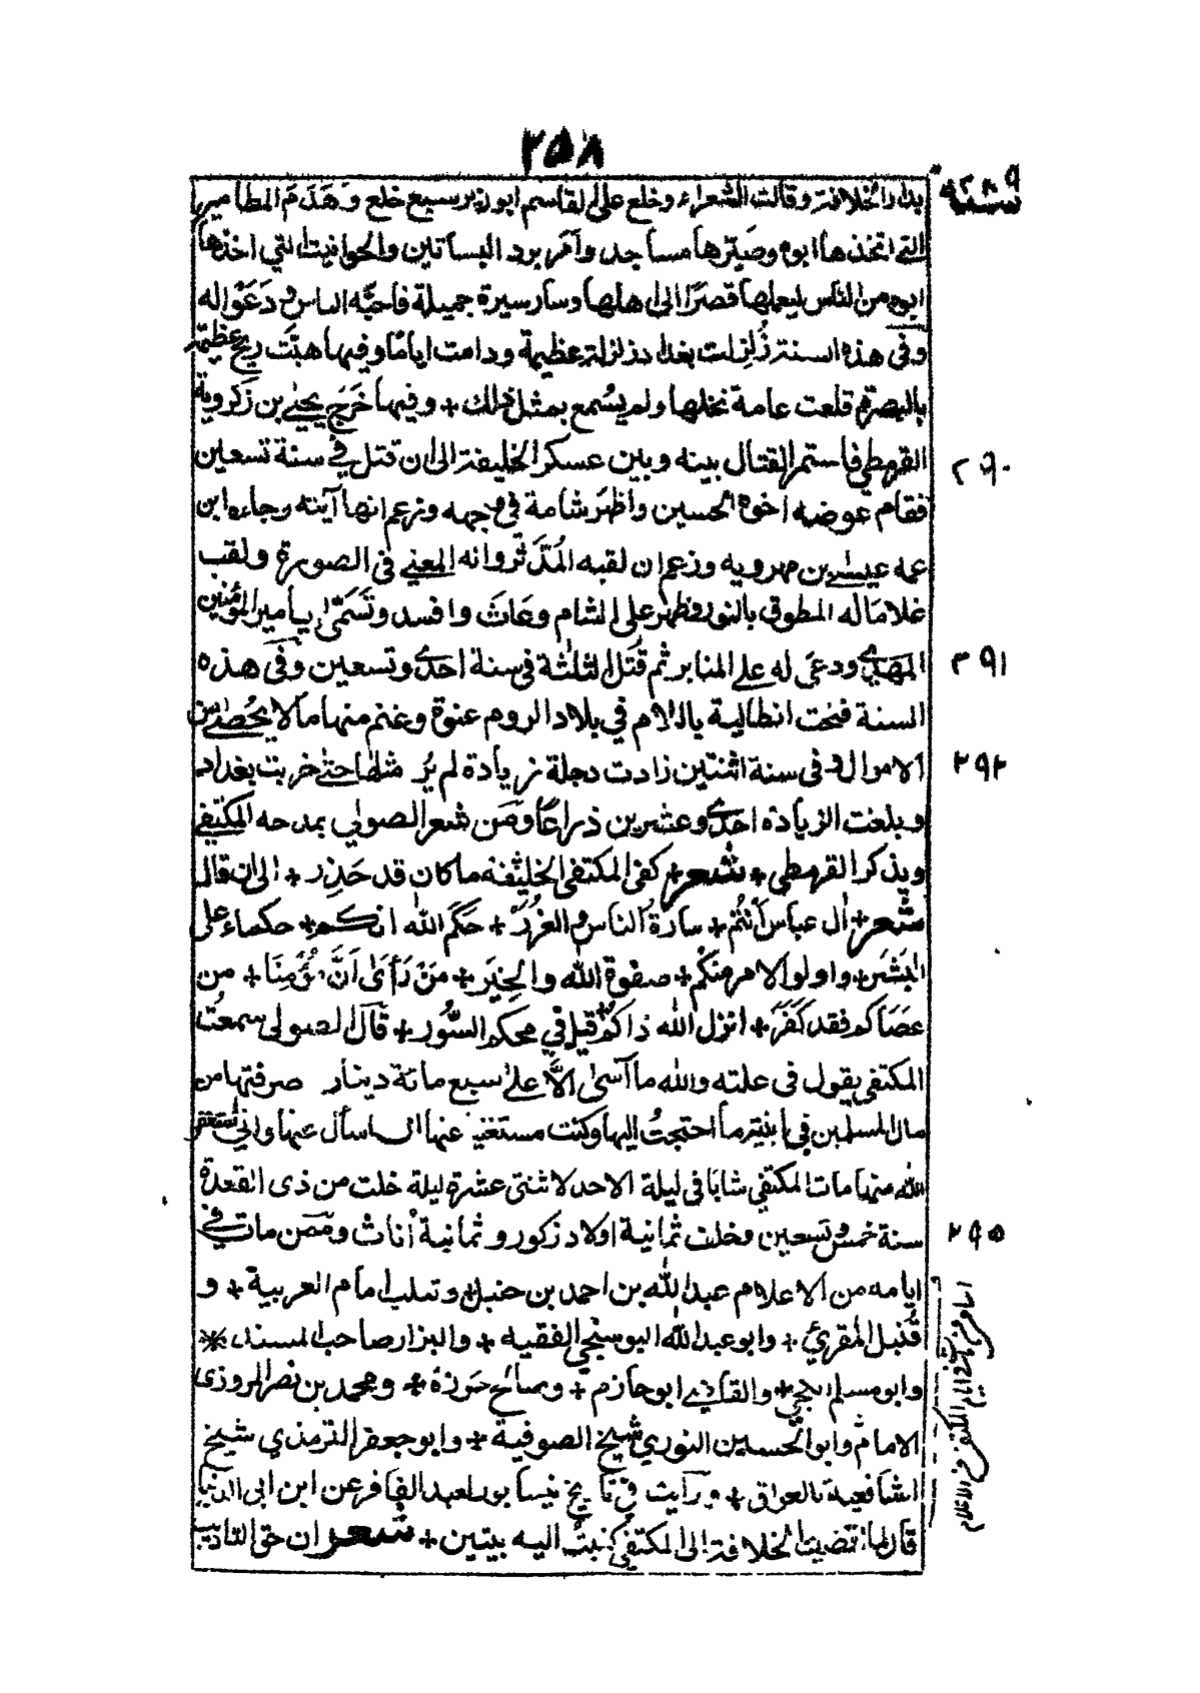 ٢٥٨
سنة ٢٨٩
بدار الخلافة وقالت الشعراء وخلع على القاسم ابو زير سبع خلع وَهَدَمَ المطامير
التي اتخذها ابوه وصَيَّرها مساجد وأمر برد البساتين والحوانيت التي اخذها
ابوه من الناس ليعملها قصرًا الى اهلها وسار سيرة جميلة فاحبَّه الناس و دَعَوْا له
وفى هذه السنة زُلْزِلت بغداد زلزلة عظيمة ودامت ايامًا وفيها هبَّت ريح عظيمة
بالبصرة قلعت عامة نخلها ولم يسُمع بمثل ذلك + وفيها خَرَجَ يحيٰى بن زَكرويه
القرمطي فاستمر القتال بينه وبين عسكر الخليفة الى ان قتل في سنة تسعين
٢٩٠
فقام عوضه اخوه الحسين واظهَر شامة في وجهه وزعم انها آيته وجاءه ابن
عمه عيسٰى بن مهرويه وزعم ان لقبه المُدَّثر وانه المعني فى الصورة ولقب
غلامًا له المطوق بالنور وظهر على الشام وعَاثَ وافسد وتَسَمّٰى بأمير المؤمنين
المهدي ودعىَ له على المنابر ثم قُتل الثلثة فى سنة احدى وتسعين وفى هذه
٢٩١
السنة فتحت انطالية باللام في بلاد الروم عنوة وغنم منها ما لا يُحصٰى من
الاموال وفى سنة اثنتين زادت دجلة زيادة لم يُرَ مثلها حتى خربت بغداد
٢٩٢
وبلغت الزيادة احدى وعشرين ذراعًا ومن شعر الصولي يمدحه المكتفي
ويذكر القرمطي + شعر + كفى المكتفى الخليفة ما كان قد حَذِر + الى ان قال
شعر + اٰل عباس أنْتُم + سادة الناس والغُرَرْ + حَكَمَ اللّٰه انكم + حكماء على
البَشَر + واولو الامر منكُم + صفوة اللّٰه والخِيَر + مَن رَأى أَنَّ مُؤمِنًا + من
عصَاكم فقد كَفَرَ + انزل اللّٰه ذاكم + قبل في محكم السُّوَر + قال الصولى سمعتُ
المكتفى يقول فى علته واللّٰه ما آسٰى الّا على سبع مائة دينار صرفتها من
مال المسلمين في ابنية ما احتجتُ اليها وكنت مستغنيا عنها اسأل عنها واني استغفر
اللّٰه منها مات المكتفي شابًا فى ليلة الاحد لاثنتى عشرة ليلة خلت من ذى القعدة
سنة خمس وتسعين وخلف ثمانية اولاد ذكور وثمانية أناث وممن مات في
٢٩٥
ايامه من الاعلام عبد اللّٰه بن احمد بن حنبل + وثعلب امام العربية + و
قُنبل المقرئ + وابو عبد اللّٰه البوسنجي الفقيه + والبزار صاحب المسند *
وابو مسلم الكجي + والقاضي ابو حازم + وصالح جزرة + ومحمد بن نصر المروزى
الامام وابو الحسين النوري شيخ الصوفية + وابو جعفر الترمذي شيخ
الشافعية بالعراق + ورأيت في تاريخ نيسابور لعبد الغافر عن ابن ابى الدنيا
قال لما افضيت الخلافة الى المكتفى كتبت اليه بيتين + شعر ان حق التاديب